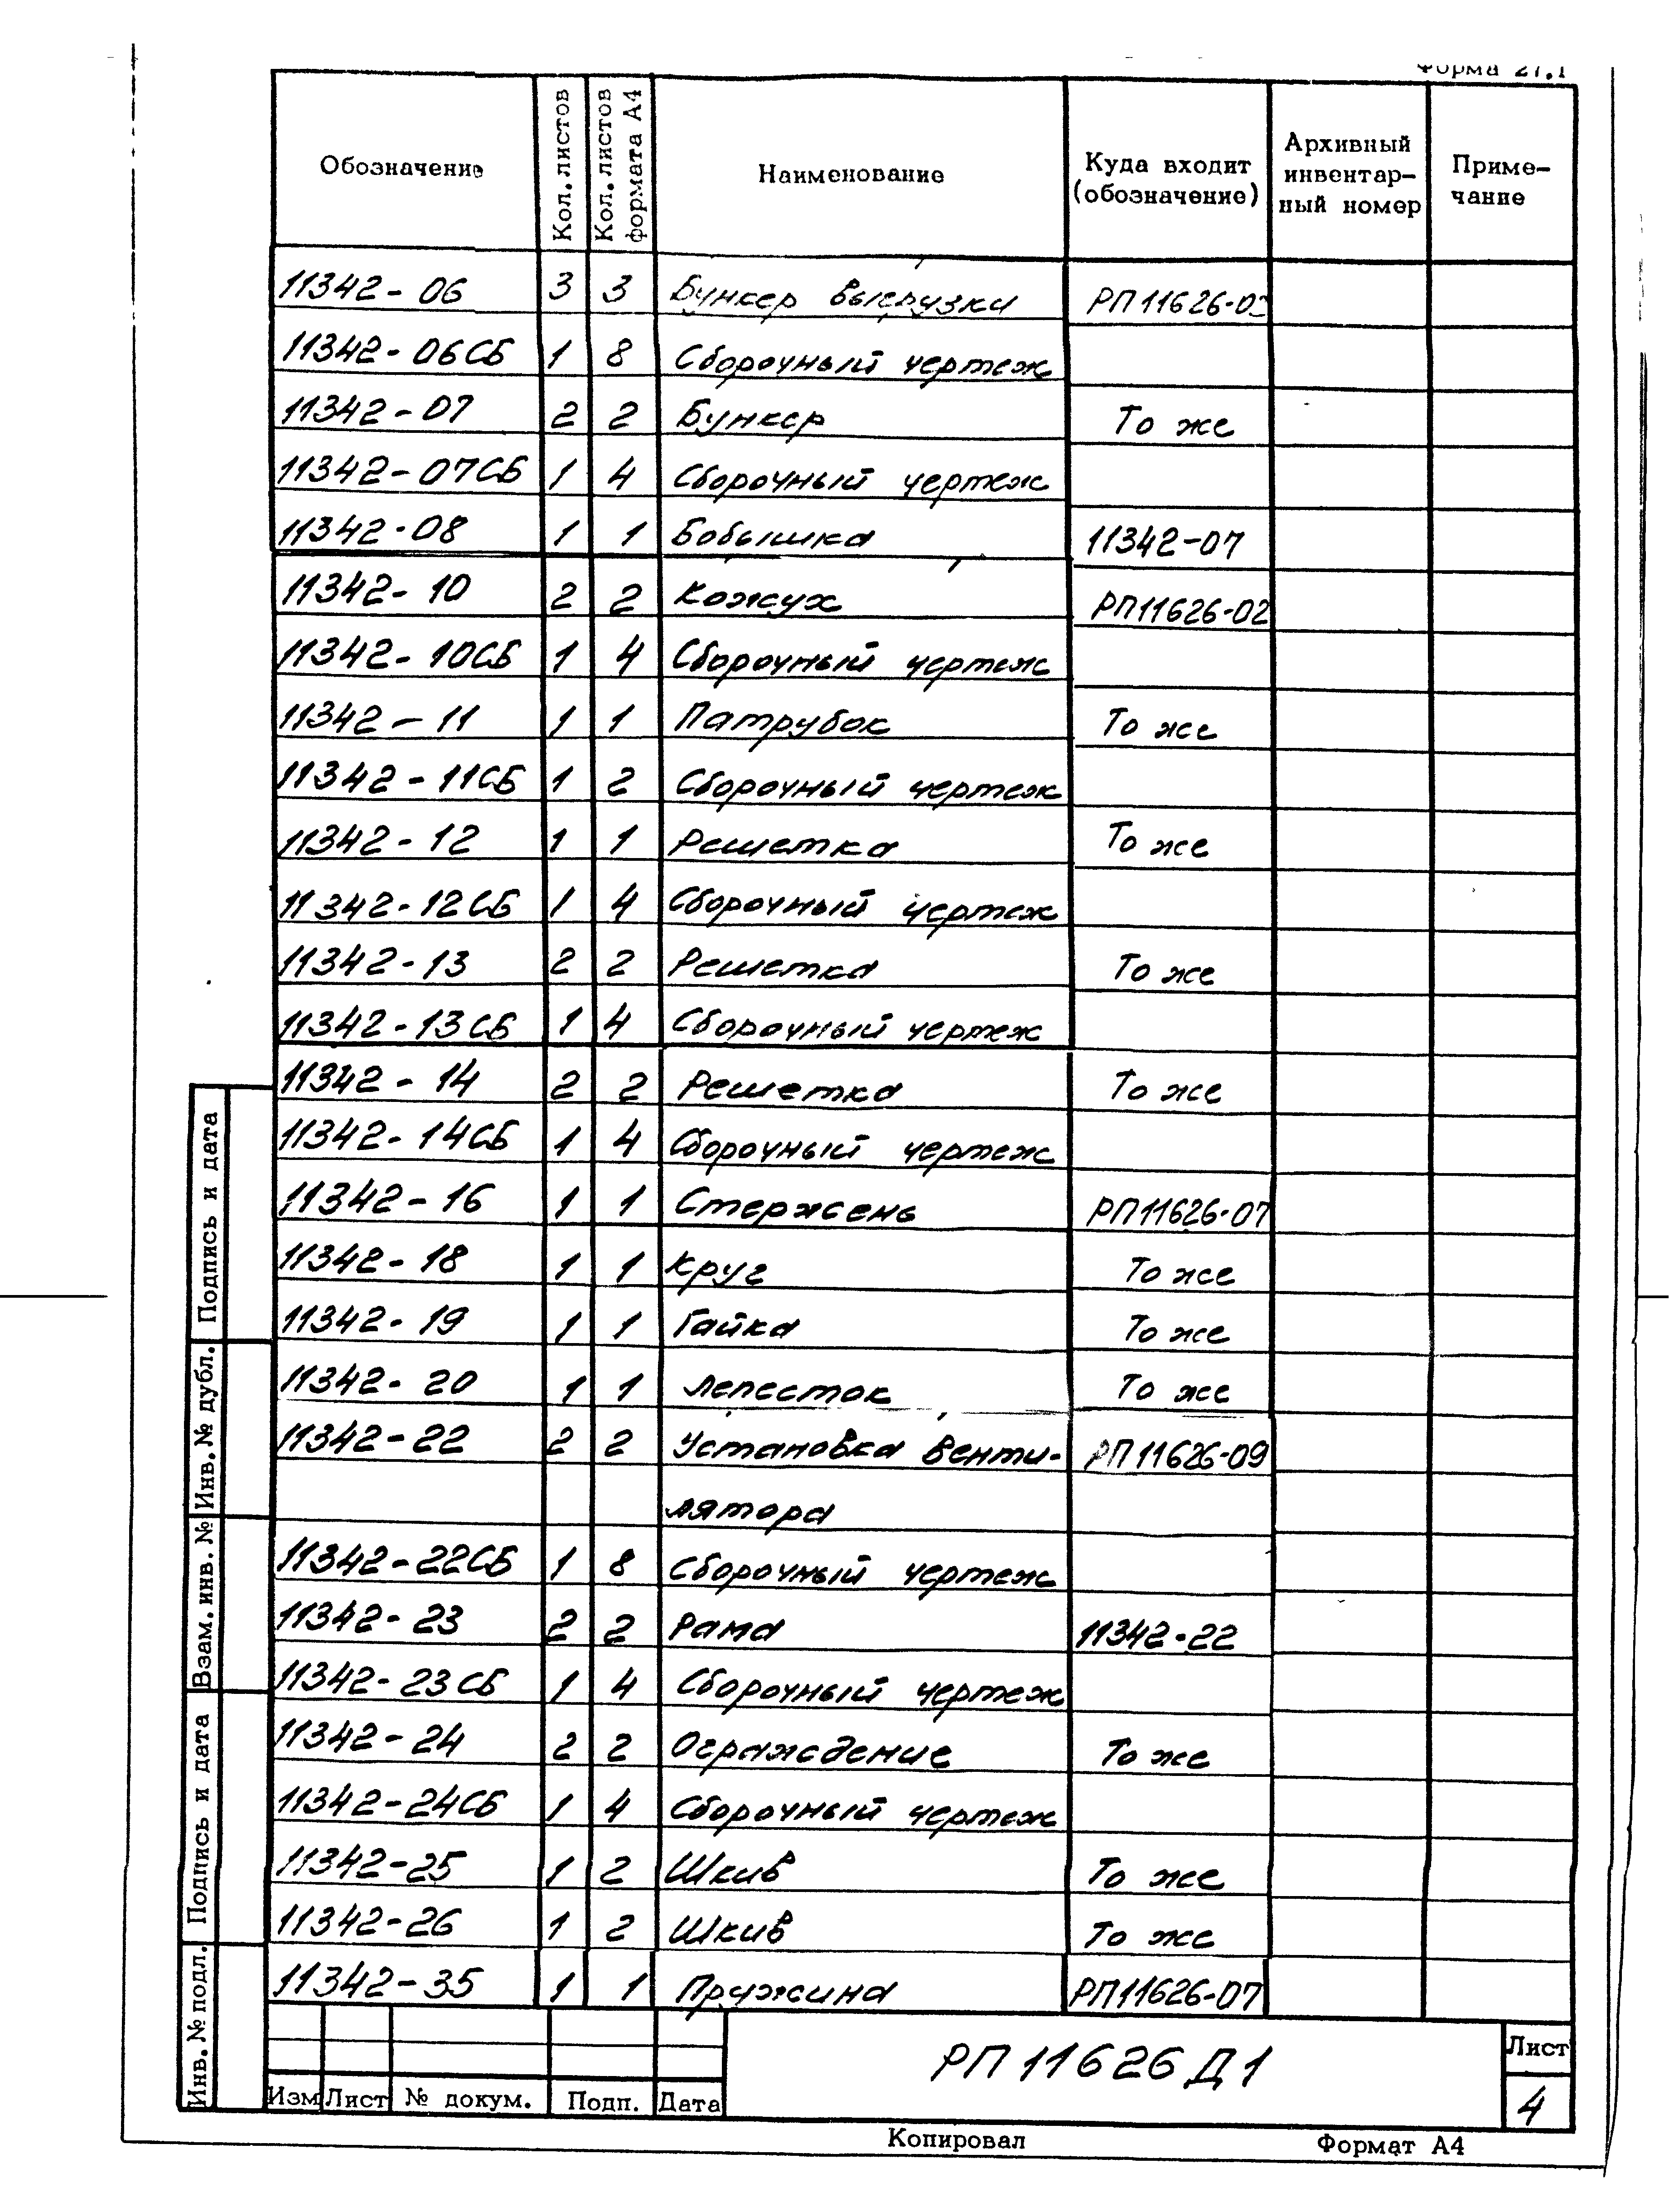 Форма 27.1
Обозначение Кол. листов Кол. листов формата А4 Наименование Куда входит (обозначение) Архивный инвентар-ный номер Приме-чание
11342-06 3 3 Бункер выгрузки
11342-06СБ 1 8 Сборочный чертеж
11342-07 2 2 Бункер То же
11342-07СБ 1 4 Сборочный чертеж
11342-08 1 1 Бобышка 11342-07
11342-10 2 2 Кожух РП11626-02
11342-10СБ 1 4 Сборочный чертеж
11342-11 1 1 Патрубок То же
11342-11СБ 1 2 Сборочный чертеж
11342-12 1 1 Решетка То же
11342-12СБ 1 4 Сборочный чертеж
11342-13 2 2 Решетка То же
11342-13СБ 1 4 Сборочный чертеж
11342-14 2 2 Решетка То же
11342-14СБ 1 4 Сборочный чертеж
11342-16 1 1 Стержень РП11626-07
11342-18 1 1 Круг То же
11342-19 1 1 Гайка То же
11342-20 1 1 Лепесток То же
11342-22 2 2 Установка венти- РП11626-09
лятора
11342-22СБ 1 8 Сборочный чертеж
11342-23 2 2 Рама 11342-22
11342-23СБ 1 4 Сборочный чертеж
11342-24 2 2 Ограждение То же
11342-24СБ 1 4 Сборочный чертеж
11342-25 1 2 Шкив То же
11342-26 1 2 Шкив То же
11342-35 1 1 Пружина РП11626-07
Подпись и дата
Инв. № дубл.
Взам. инв. №
Подпись и дата
Инв. № подл.
РП 11626 Д1
Лист
4
Изм Лист № докум. Подп. Дата
Копировал Формат А4